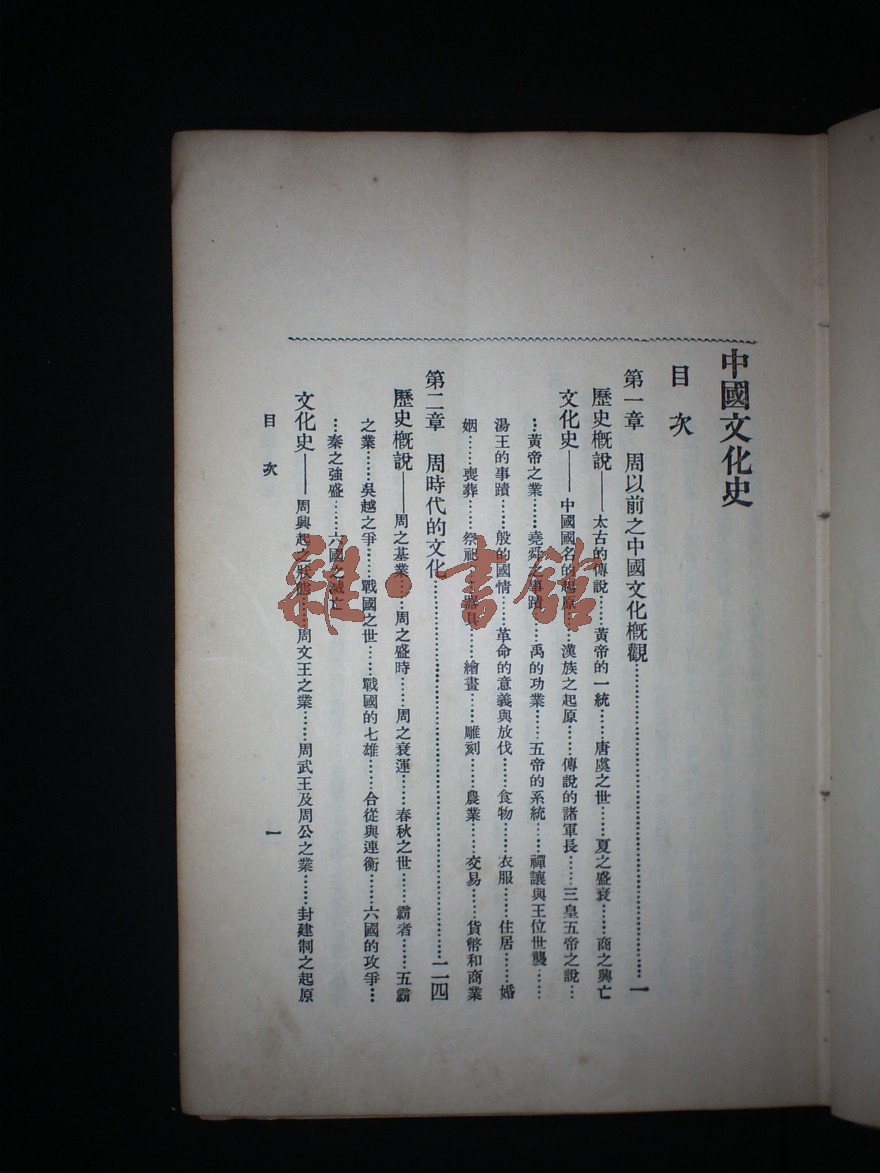 中國文化史
目次
第一章　周以前之中國文化概觀……一
歷史概說——太古的傳說……黃帝的一統……唐虞之世……夏之盛衰……商之興亡
文化史——中國國名的起原……漢族之起原……傳說的諸軍長……三皇五帝之說…
…黃帝之業……堯舜之事蹟……禹的功業……五帝的系統……禪讓與王位世襲……
湯王的事蹟……殷的國情……革命的意義與放伐……食物……衣服……住居……婚
姻……喪葬……祭祀……器具……繪畫……雕刻……農業……交易……貨幣和商業
第二章　周時代的文化……二四
歷史概說——周之基業……周之盛時……周之衰運……春秋之世……霸者……五霸
之業……吳越之爭……戰國之世……戰國的七雄……合從與連衡……六國的攻爭…
…秦之強盛……六國之滅亡
文化史——周興起之狀態……周文王之業……周武王及周公之業……封建制之起原
目次
一
雜·書館